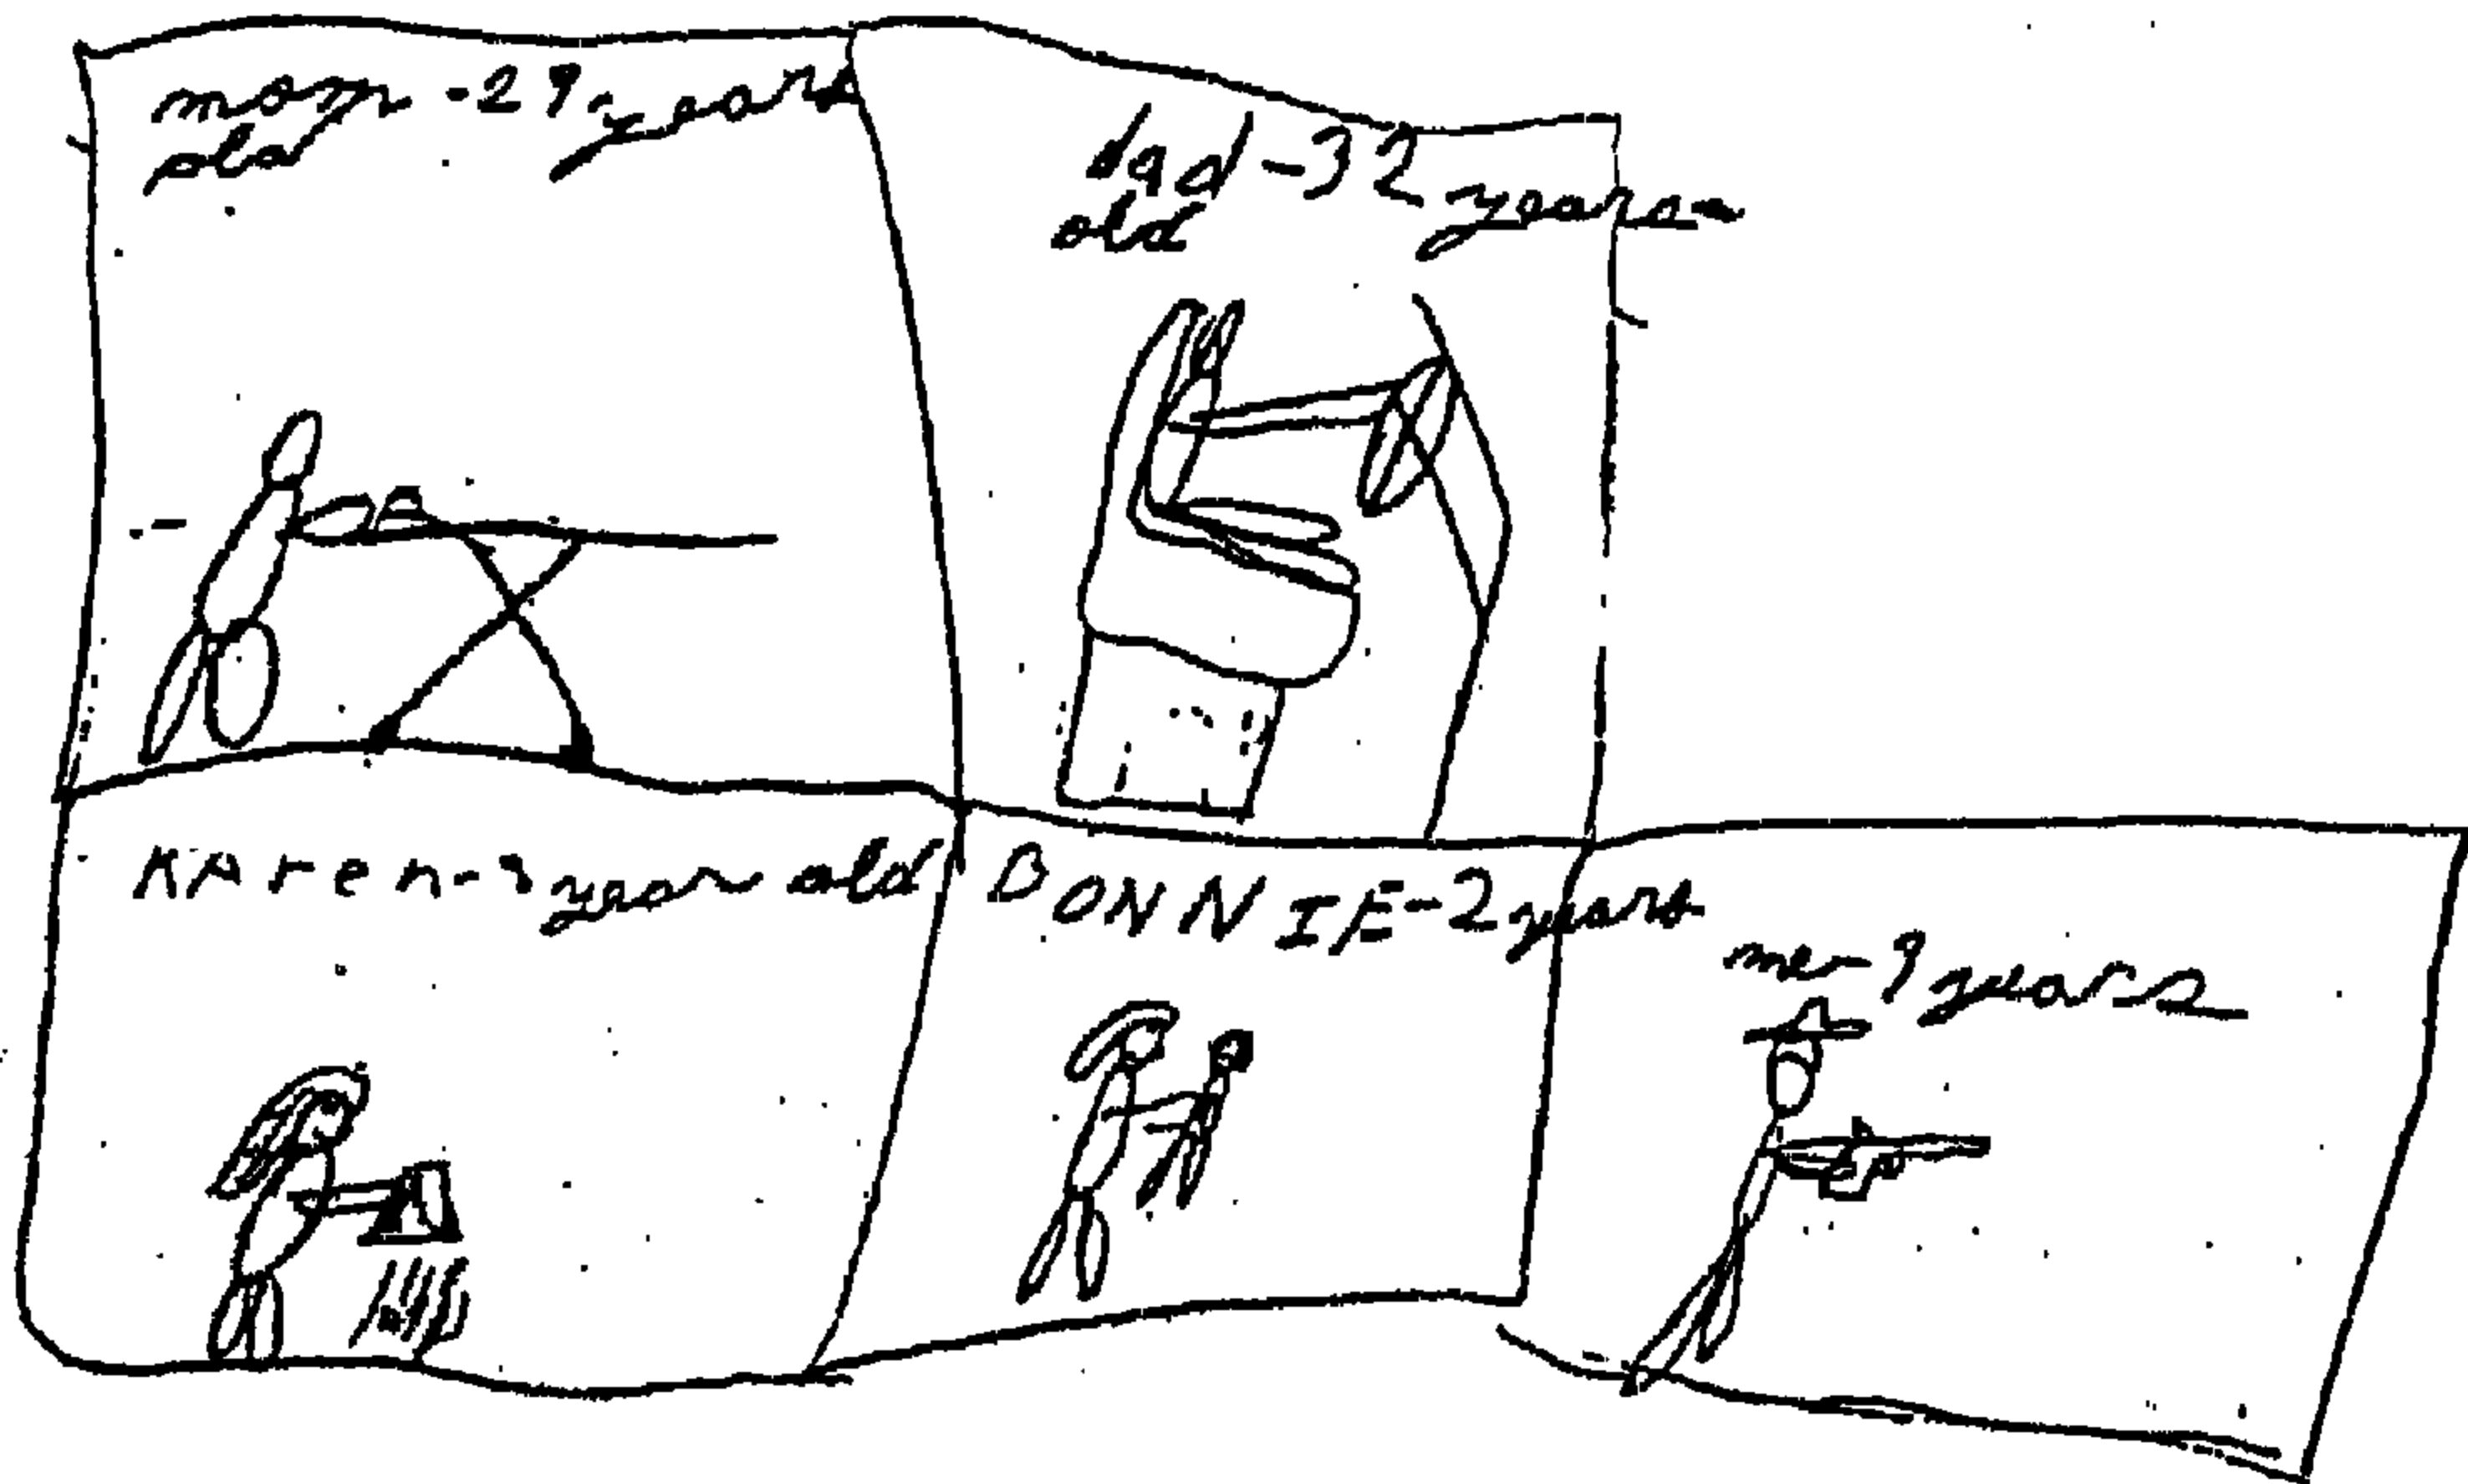 mom - 29 years
old
dad - 32 years
old
KAren - 9 year old
BONNIE - 2 years
me - 9 years